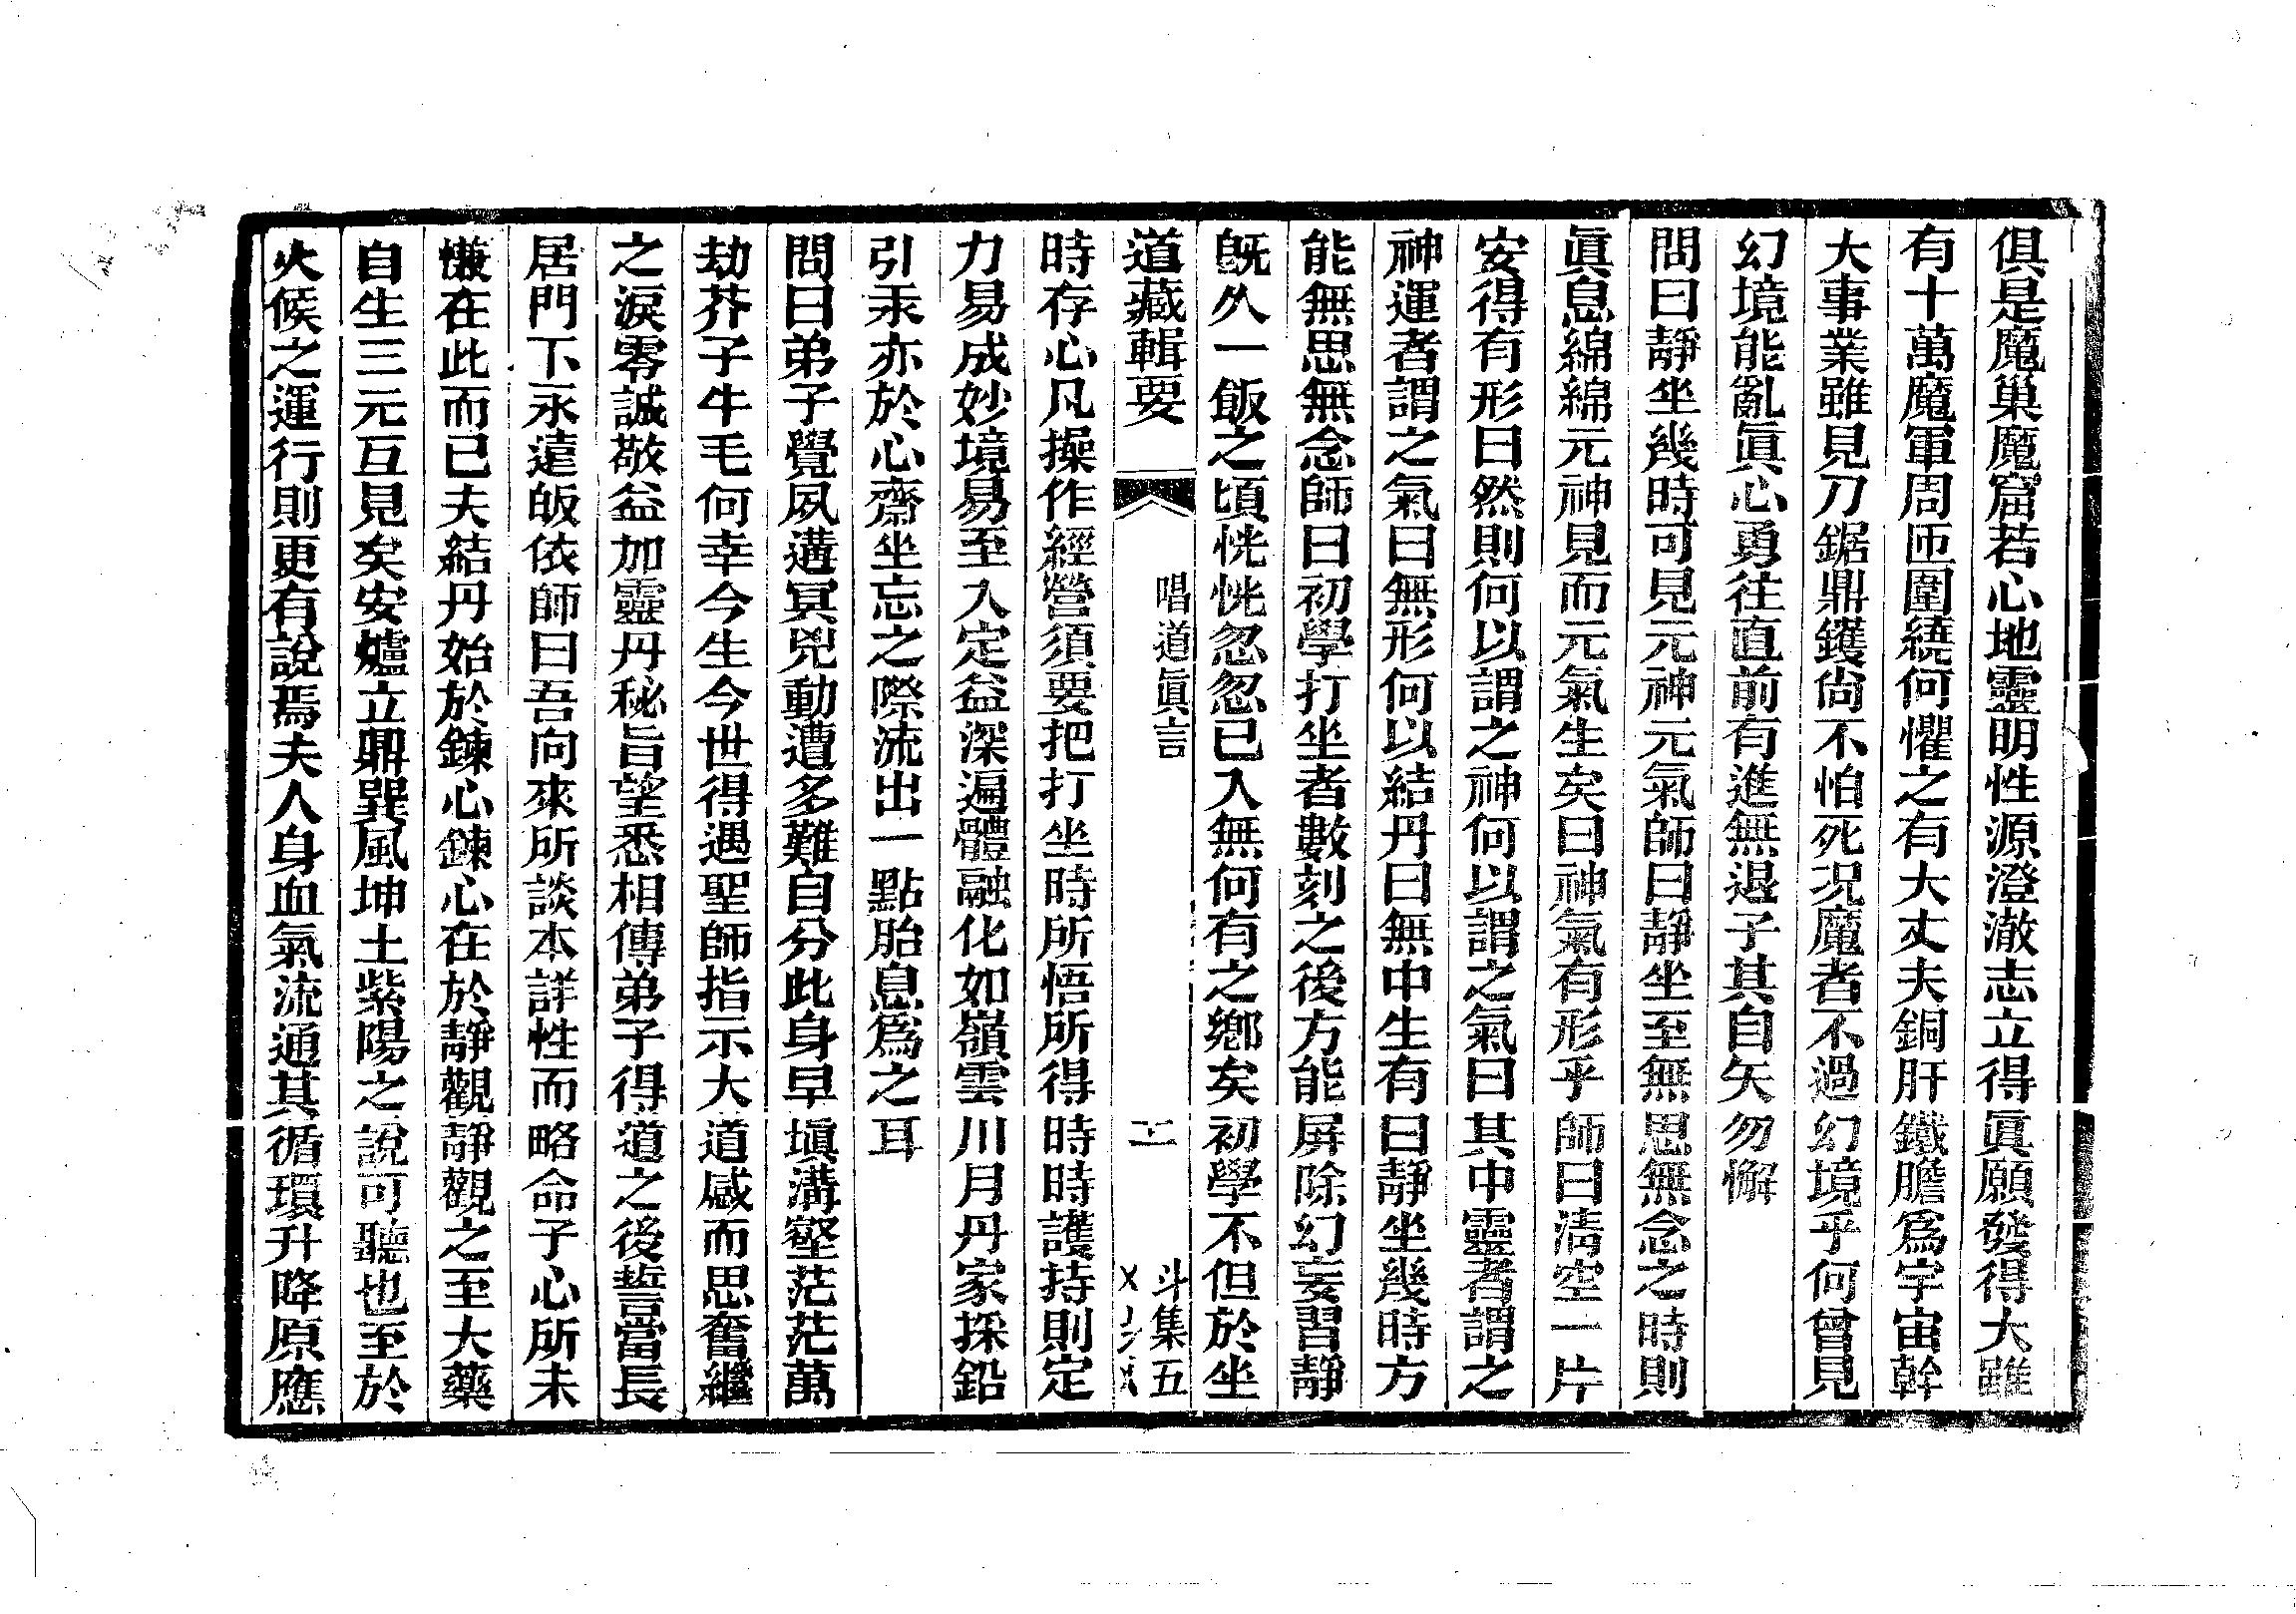 俱是魔巢魔窟若心地靈明性源澄澈志立得眞願發得大雖
有十萬魔軍周匝圍繞何懼之有大丈夫銅肝鐵膽爲宇宙幹
大事業雖見刀鋸鼎鑊尙不怕死况魔者不過幻境乎何曾見
幻境能亂眞心勇往直前有進無退子其自矢勿懈
問曰靜坐幾時可見元神元氣師曰靜坐至無思無念之時則
眞息綿綿元神見而元氣生矣曰神氣有形乎師曰淸空一片
安得有形曰然則何以謂之神何以謂之氣曰其中靈者謂之
神運者謂之氣曰無形何以結丹曰無中生有曰靜坐幾時方
能無思無念師曰初學打坐者數刻之後方能屏除幻妄習靜
旣久一飯之頃恍恍忽忽已入無何有之鄉矣初學不但於坐
道藏輯要
唱道眞言
斗集五
時存心凡操作經營須要把打坐時所悟所得時時護持則定
力易成妙境易至入定益深遍體融化如嶺雲川月丹家採鉛
引汞亦於心齋坐忘之際流出一點胎息爲之耳
問曰弟子覺夙遘冥兇動遭多難自分此身早塡溝壑茫茫萬
劫芥子牛毛何幸今生今世得遇聖師指示大道感而思奮繼
之淚零誠敬益加靈丹秘旨望悉相傳弟子得道之後誓當長
居門下永遠皈依師曰吾向來所談本詳性而略命子心所未
慊在此而已夫結丹始於鍊心鍊心在於靜觀靜觀之至大藥
自生三元互見矣安爐立鼎巽風坤土紫陽之說可聽也至於
火候之運行則更有說焉夫人身血氣流通其循環升降原應